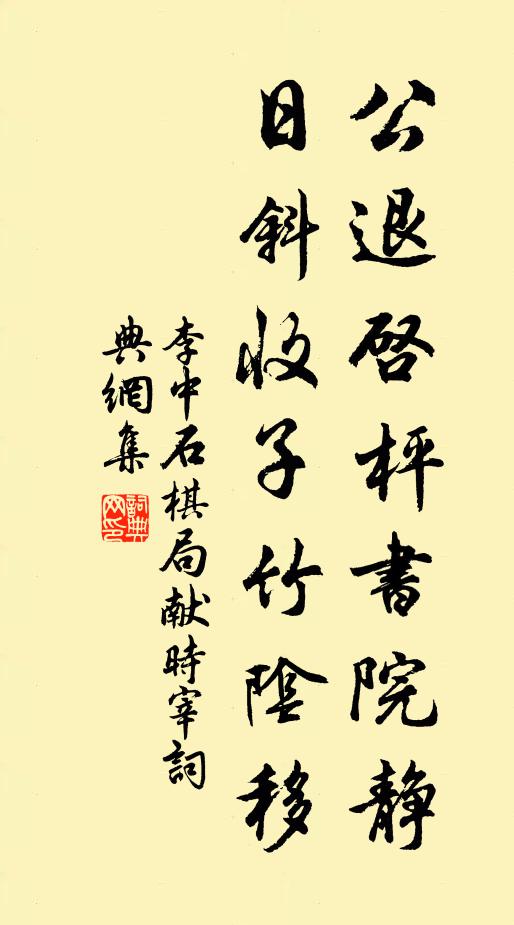 公退啓枰書院静
日斜收子竹陰移
李中石棋局献時宰詞
典網集
詞典
网印